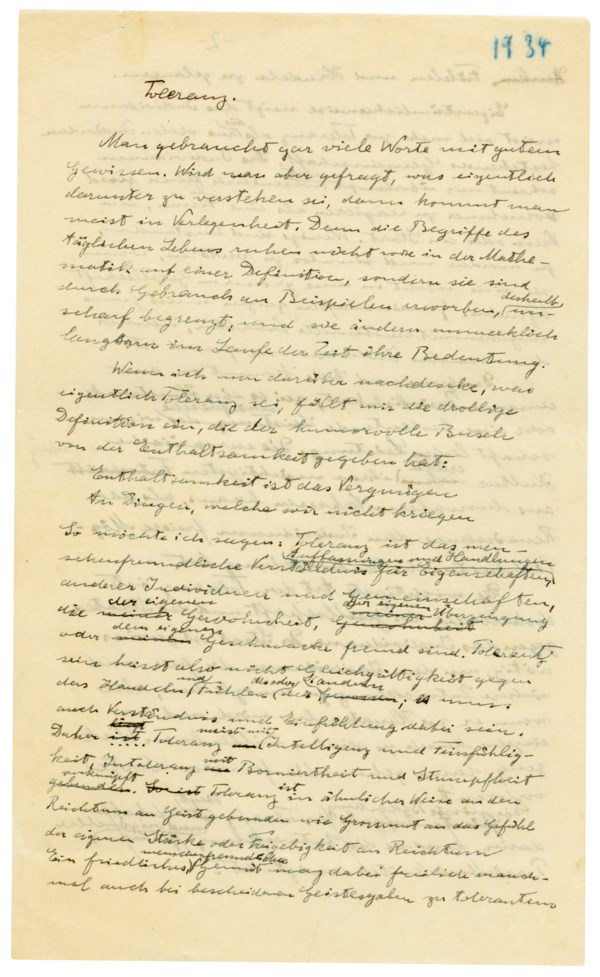 1934
Toleranz.
Man gebraucht gar viele Worte mit gutem
Gewissen. Wird man aber gefragt, was eigentlich
darunter zu verstehen sei, dann kommt man
meist in Verlegenheit. Denn die Begriffe des
täglichen Lebens ruhen nicht wie in der Mathe-
matik auf einer Definition, sondern sie sind
durch Gebrauch an Beispielen erworben, deshalb un-
scharf begrenzt, und sie ändern unmerklich
langsam im Laufe der Zeit ihre Bedeutung.
Wenn ich nun darüber nachdenke, was
eigentlich Toleranz sei, fällt mir die drollige
Definition ein, die der humorvolle Busch
von der Enthaltsamkeit gegeben hat:
Enthaltsamkeit ist das Vergnügen
An Dingen, welche wir nicht kriegen
So möchte ich sagen: Toleranz ist das men-
Auffassungen und Handlungen
schenfreundliche Verständnis für Eigenschaften,
anderer Individuen und Gemeinschaften,
der eigenen der eigenen Überzeugung
die meiner Gewohnheit, meiner Gewohnheit
dem eigenen
oder meinem Geschmacke fremd sind. Tolerant
sein heisst also nicht Gleichgültigkeit gegen
und anderen
das Handeln, Fühlen; es muss
auch Verständnis und Einfühlung dabei sein.
meist mit
Daher ist Toleranz Intelligenz und Feinfühlig-
mit
keit, Intoleranz Borniertheit und Stumpfheit
verknüpft ist
gebunden. So ist Toleranz in ähnlicher Weise an den
Reichtum an Geist gebunden wie Grossmut an das Gefühl
der eigenen Stärke oder Freigebigkeit an Reichtum
menschenfreundliches
Ein friedliches, Gemüt mag dabei freilich manch-
mal auch bei bescheidenen Geistesgaben zu tolerantem